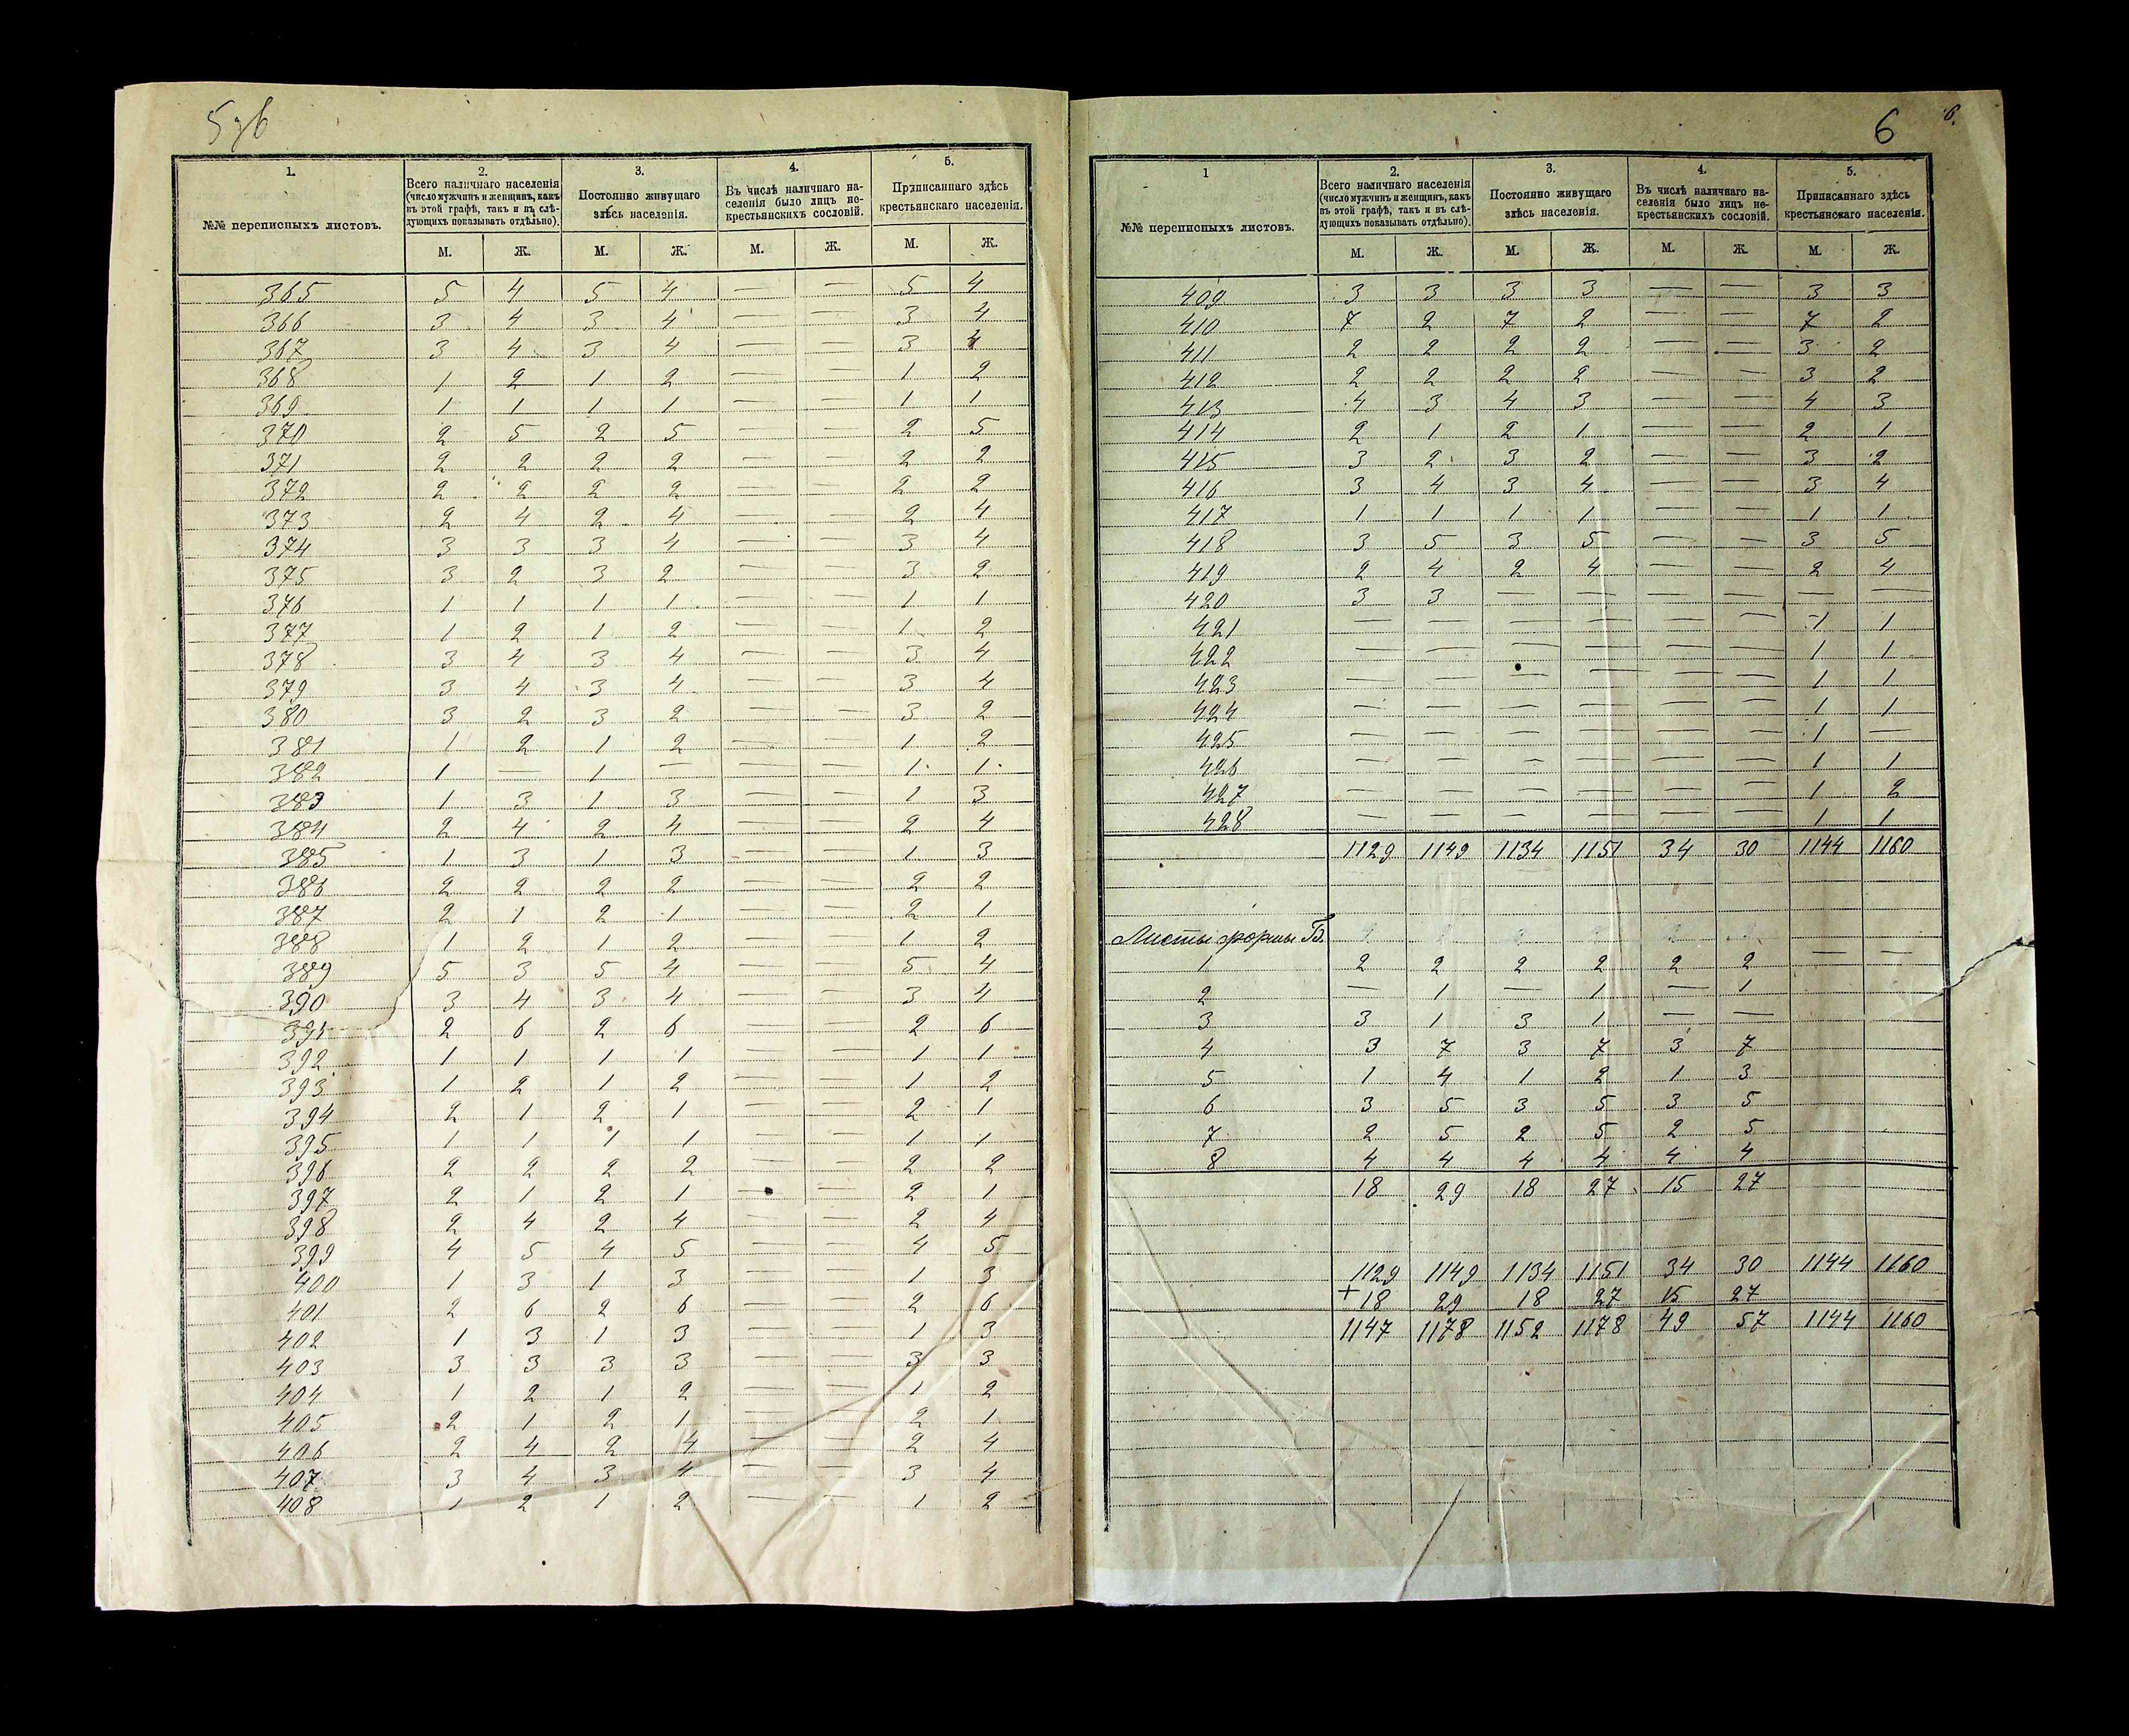 5 об
1. 2. 3. 4. 5.
№№ переписныхъ листовъ.
Всего наличнаго населенія
(число мужчинъ и женщинъ, какъ
въ этой графѣ, такъ и въ слѣ-
дующихъ показывать отдѣльно).
Постоянно живущаго
здѣсь населенія.
Въ числѣ наличнаго на-
селенія было лицъ не-
крестьянскихъ сословій.
Приписаннаго здѣсь
крестьянскаго населенія.
М. Ж. М. Ж. М. Ж. М. Ж.
365 5 4 5 4 — — 5 4
366 3 4 3 4 — — 3 4
367 3 4 3 4 — — 3 4
368 1 2 1 2 — — 1 2
369 1 1 1 1 — — 1 1
370 2 5 2 5 — — 2 5
371 2 2 2 2 — — 2 2
372 2 2 2 2 — — 2 2
373 2 4 2 4 — — 2 4
374 3 3 3 4 — — 3 4
375 3 2 3 2 — — 3 2
376 1 1 1 1 — — 1 1
377 1 2 1 2 — — 1 2
378 3 4 3 4 — — 3 4
379 3 4 3 4 — — 3 4
380 3 2 3 2 — — 3 2
381 1 2 1 2 — — 1 2
382 1 — 1 — — — 1 1
383 1 3 1 3 — — 1 3
384 2 4 2 4 — — 2 4
385 1 3 1 3 — — 1 3
386 2 2 2 2 — — 2 2
387 2 1 2 1 — — 2 1
388 1 2 1 2 — — 1 2
389 5 3 5 4 — — 5 4
390 3 4 3 4 — — 3 4
391 2 6 2 6 — — 2 6
392 1 1 1 1 — — 1 1
393 1 2 1 2 — — 1 2
394 2 1 2 1 — — 2 1
395 1 1 1 1 — — 1 1
396 2 2 2 2 — — 2 2
397 2 1 2 1 — — 2 1
398 2 4 2 4 — — 2 4
399 4 5 4 5 — — 4 5
400 1 3 1 3 — — 1 3
401 2 6 2 6 — — 2 6
402 1 3 1 3 — — 1 3
403 3 3 3 3 — — 3 3
404 1 2 1 2 — — 1 2
405 2 1 2 1 — — 2 1
406 2 4 2 4 — — 2 4
407 3 4 3 4 — — 3 4
408 1 2 1 2 — — 1 2
6 6.
1 2. 3. 4. 5.
№№ переписныхъ листовъ.
Всего наличнаго населенія
(число мужчинъ и женщинъ, какъ
въ этой графѣ, такъ и въ слѣ-
дующихъ показывать отдѣльно).
Постоянно живущаго
здѣсь населенія.
Въ числѣ наличнаго на-
селенія было лицъ не-
крестьянскихъ сословій.
Приписаннаго здѣсь
крестьянскаго населенія.
М. Ж. М. Ж. М. Ж. М. Ж.
409 3 3 3 3 — — 3 3
410 7 2 7 2 — — 7 2
411 2 2 2 2 — — 3 2
412 2 2 2 2 — — 3 2
413 4 3 4 3 — — 4 3
414 2 1 2 1 — — 2 1
415 3 2 3 2 — — 3 2
416 3 4 3 4 — — 3 4
417 1 1 1 1 — — 1 1
418 3 5 3 5 — — 3 5
419 2 4 2 4 — — 2 4
420 3 3 — — — — — —
421 — — — — — — 1 1
422 — — — — — — 1 1
423 — — — — — — 1 1
424 — — — — — — 1 1
425 — — — — — — 1 —
426 — — — — — — 1 1
427 — — — — — — 1 2
428 — — — — — — 1 1
1129 1149 1134 1151 34 30 1144 1160
Листы формы Б.
1 2 2 2 2 2 2 — —
2 — 1 — 1 — 1
3 3 1 3 1 — —
4 3 7 3 7 3 7
5 1 4 1 2 1 3
6 3 5 3 5 3 5
7 2 5 2 5 2 5
8 4 4 4 4 4 4
18 29 18 27 15 27
1129 1149 1134 1151 34 30 1144 1160
+ 18 29 18 27 15 27
1147 1178 1152 1178 49 57 1144 1160